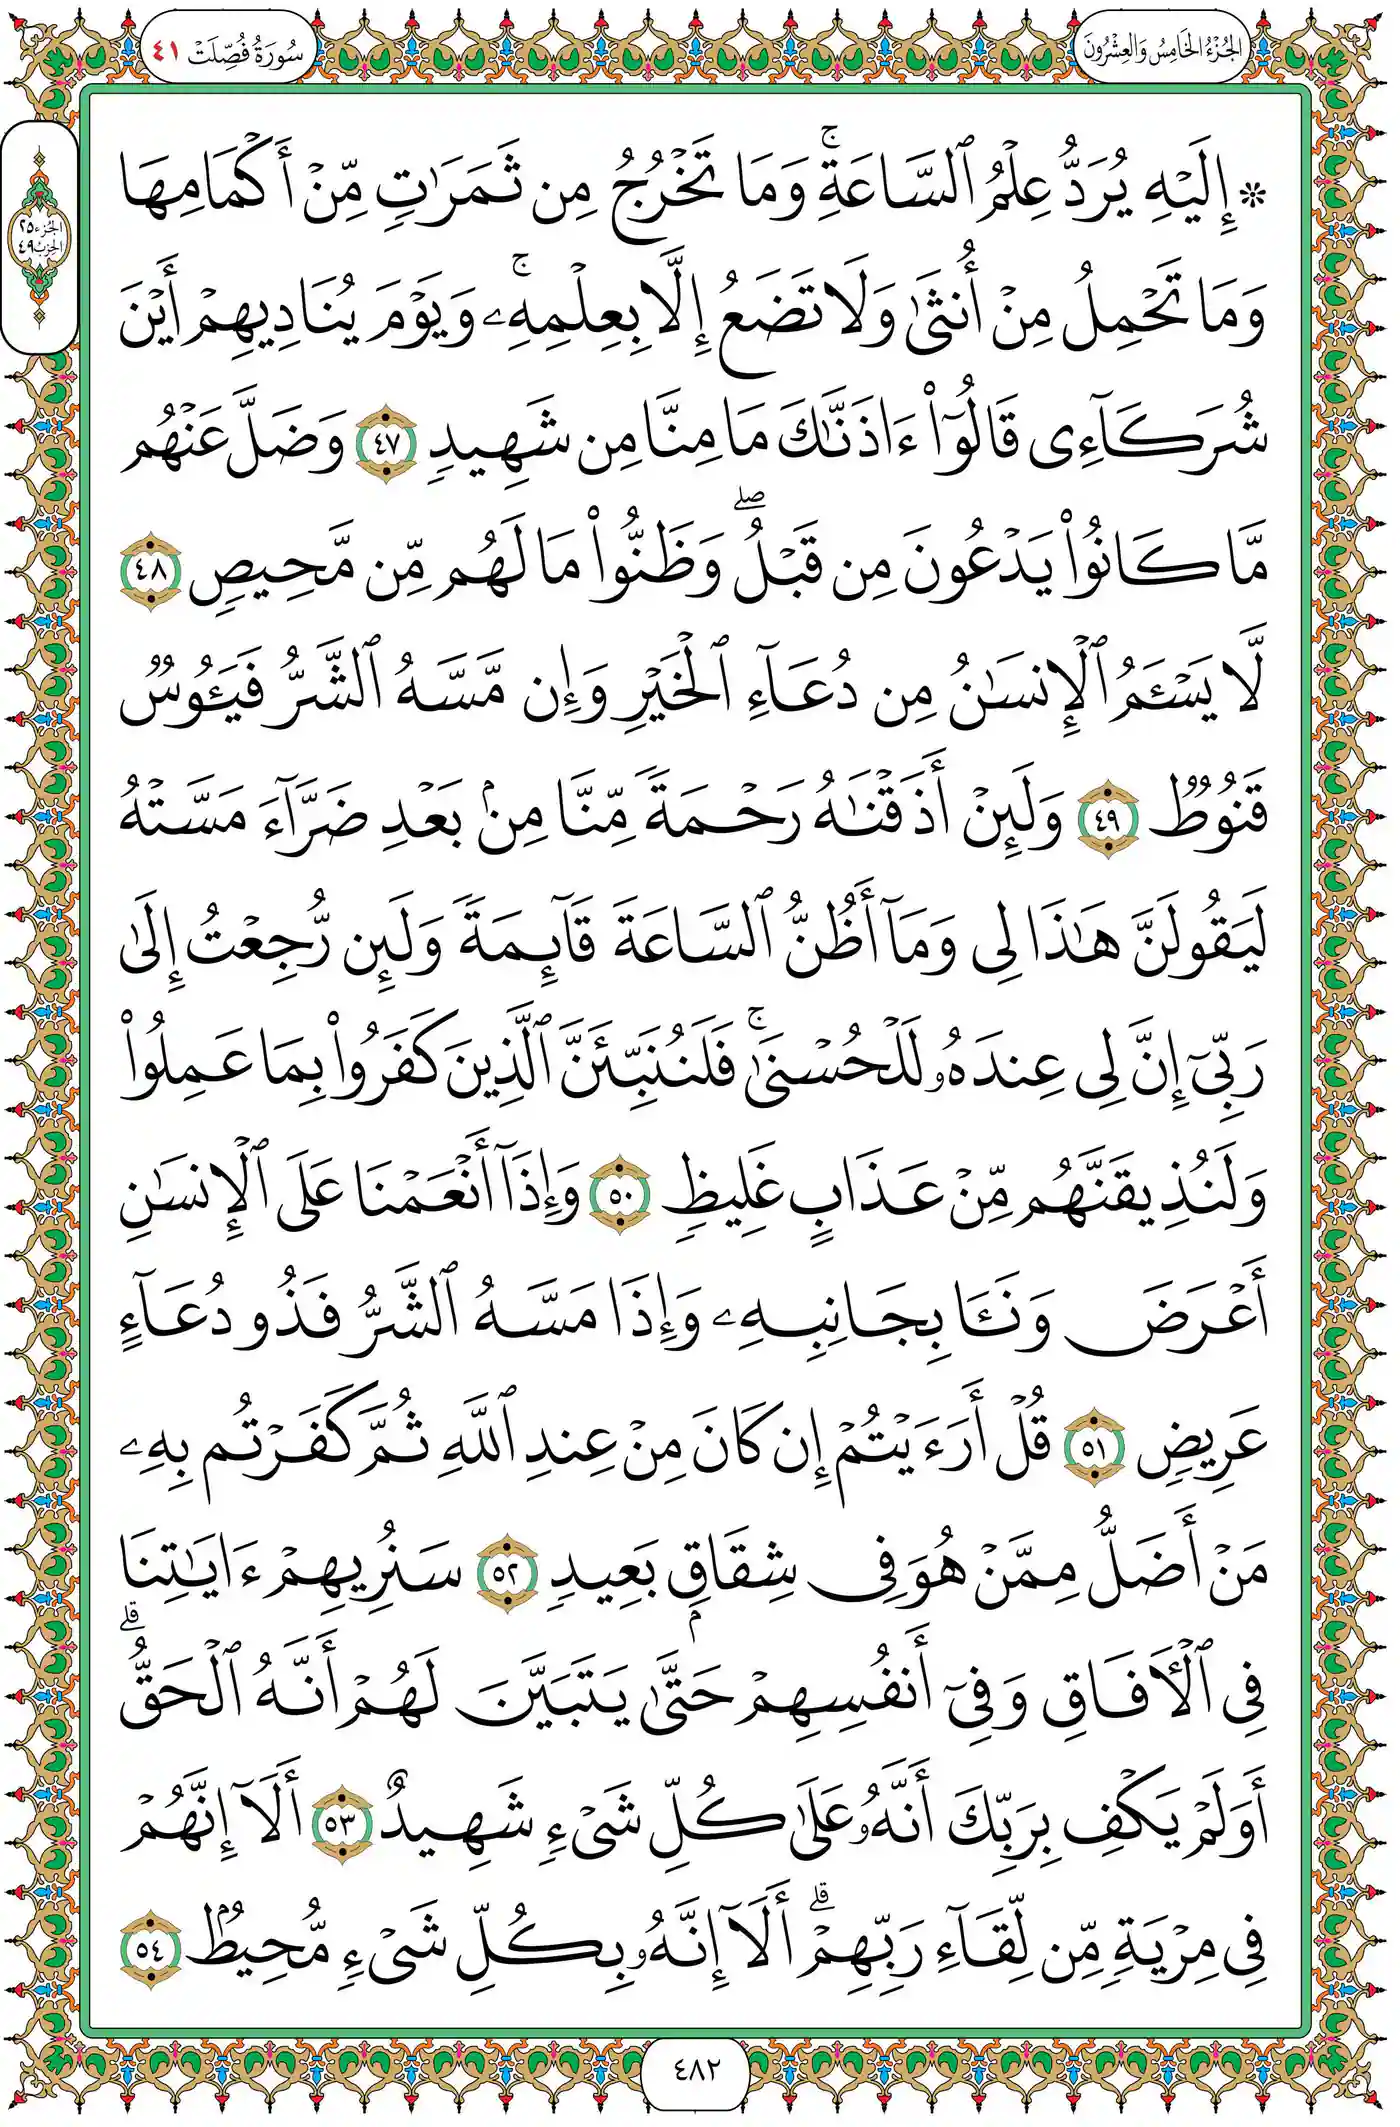 سُورَةُ فُصِّلَتْ ٤١
الجُزْءُ الخَامِسُ وَالعِشْرُونَ
الجزء ٢٥
الحزب ٤٩
۞ إِلَيْهِ يُرَدُّ عِلْمُ ٱلسَّاعَةِۚ وَمَا تَخْرُجُ مِن ثَمَرَٰتٍ مِّنْ أَكْمَامِهَا
وَمَا تَحْمِلُ مِنْ أُنثَىٰ وَلَا تَضَعُ إِلَّا بِعِلْمِهِۦۚ وَيَوْمَ يُنَادِيهِمْ أَيْنَ
شُرَكَآءِى قَالُوٓا۟ ءَاذَنَّـٰكَ مَا مِنَّا مِن شَهِيدٍ ٤٧ وَضَلَّ عَنْهُم
مَّا كَانُوا۟ يَدْعُونَ مِن قَبْلُۖ وَظَنُّوا۟ مَا لَهُم مِّن مَّحِيصٍ ٤٨
لَّا يَسْـَٔمُ ٱلْإِنسَـٰنُ مِن دُعَآءِ ٱلْخَيْرِ وَإِن مَّسَّهُ ٱلشَّرُّ فَيَـُٔوسٌ
قَنُوطٌ ٤٩ وَلَئِنْ أَذَقْنَـٰهُ رَحْمَةً مِّنَّا مِنۢ بَعْدِ ضَرَّآءَ مَسَّتْهُ
لَيَقُولَنَّ هَـٰذَا لِى وَمَآ أَظُنُّ ٱلسَّاعَةَ قَآئِمَةً وَلَئِن رُّجِعْتُ إِلَىٰ
رَبِّىٓ إِنَّ لِى عِندَهُۥ لَلْحُسْنَىٰۚ فَلَنُنَبِّئَنَّ ٱلَّذِينَ كَفَرُوا۟ بِمَا عَمِلُوا۟
وَلَنُذِيقَنَّهُم مِّنْ عَذَابٍ غَلِيظٍ ٥٠ وَإِذَآ أَنْعَمْنَا عَلَى ٱلْإِنسَـٰنِ
أَعْرَضَ وَنَـَٔا بِجَانِبِهِۦ وَإِذَا مَسَّهُ ٱلشَّرُّ فَذُو دُعَآءٍ
عَرِيضٍ ٥١ قُلْ أَرَءَيْتُمْ إِن كَانَ مِنْ عِندِ ٱللَّهِ ثُمَّ كَفَرْتُم بِهِۦ
مَنْ أَضَلُّ مِمَّنْ هُوَ فِى شِقَاقٍۭ بَعِيدٍ ٥٢ سَنُرِيهِمْ ءَايَـٰتِنَا
فِى ٱلْـَٔافَاقِ وَفِىٓ أَنفُسِهِمْ حَتَّىٰ يَتَبَيَّنَ لَهُمْ أَنَّهُ ٱلْحَقُّۗ
أَوَلَمْ يَكْفِ بِرَبِّكَ أَنَّهُۥ عَلَىٰ كُلِّ شَىْءٍ شَهِيدٌ ٥٣ أَلَآ إِنَّهُمْ
فِى مِرْيَةٍ مِّن لِّقَآءِ رَبِّهِمْۗ أَلَآ إِنَّهُۥ بِكُلِّ شَىْءٍ مُّحِيطٌۢ ٥٤
٤٨٢